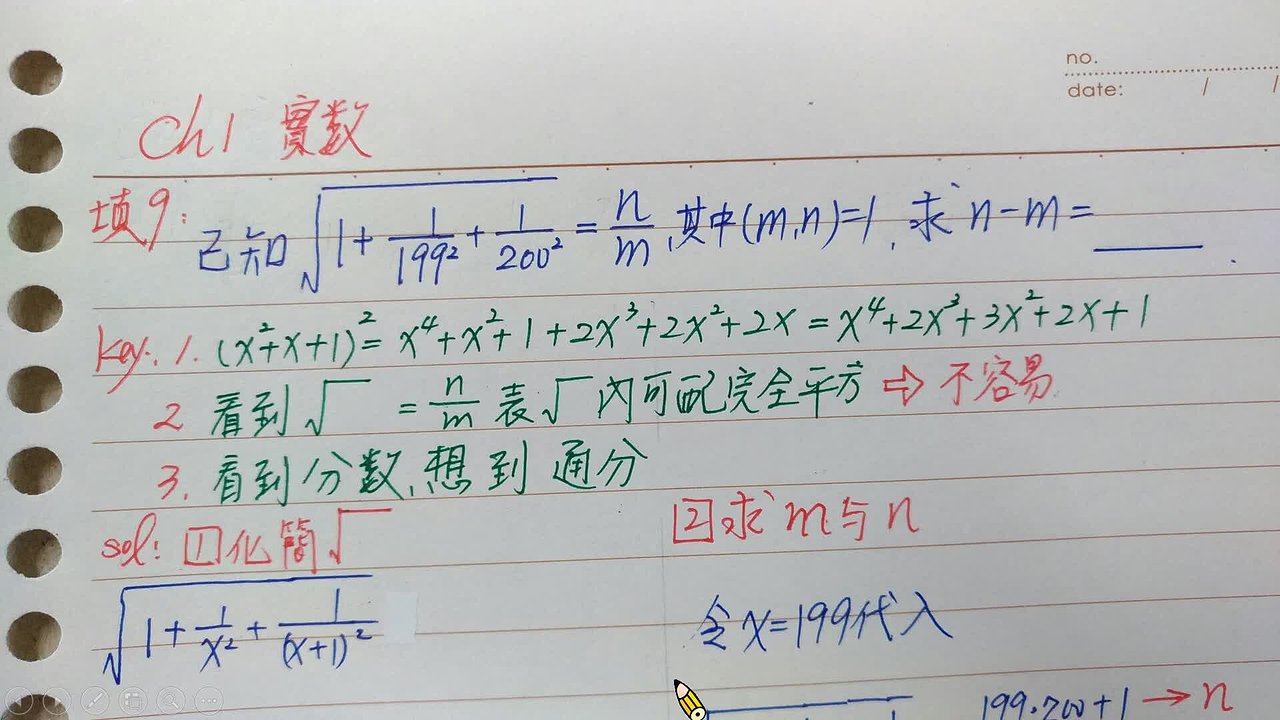 no.
date: / /
Ch1 實数
填9:
已知√(1+1/199²+1/200²)=n/m,其中(m,n)=1,求n-m=____.
key:1.(x²+x+1)²=x⁴+x²+1+2x³+2x²+2x=x⁴+2x³+3x²+2x+1
2 看到√ =n/m表√內可配完全平方⇨不容易
3.看到分数,想到通分
sol:①化簡√
√(1+1/x²+1/(x+1)²)
②求m与n
令x=199代入
199·200+1→n